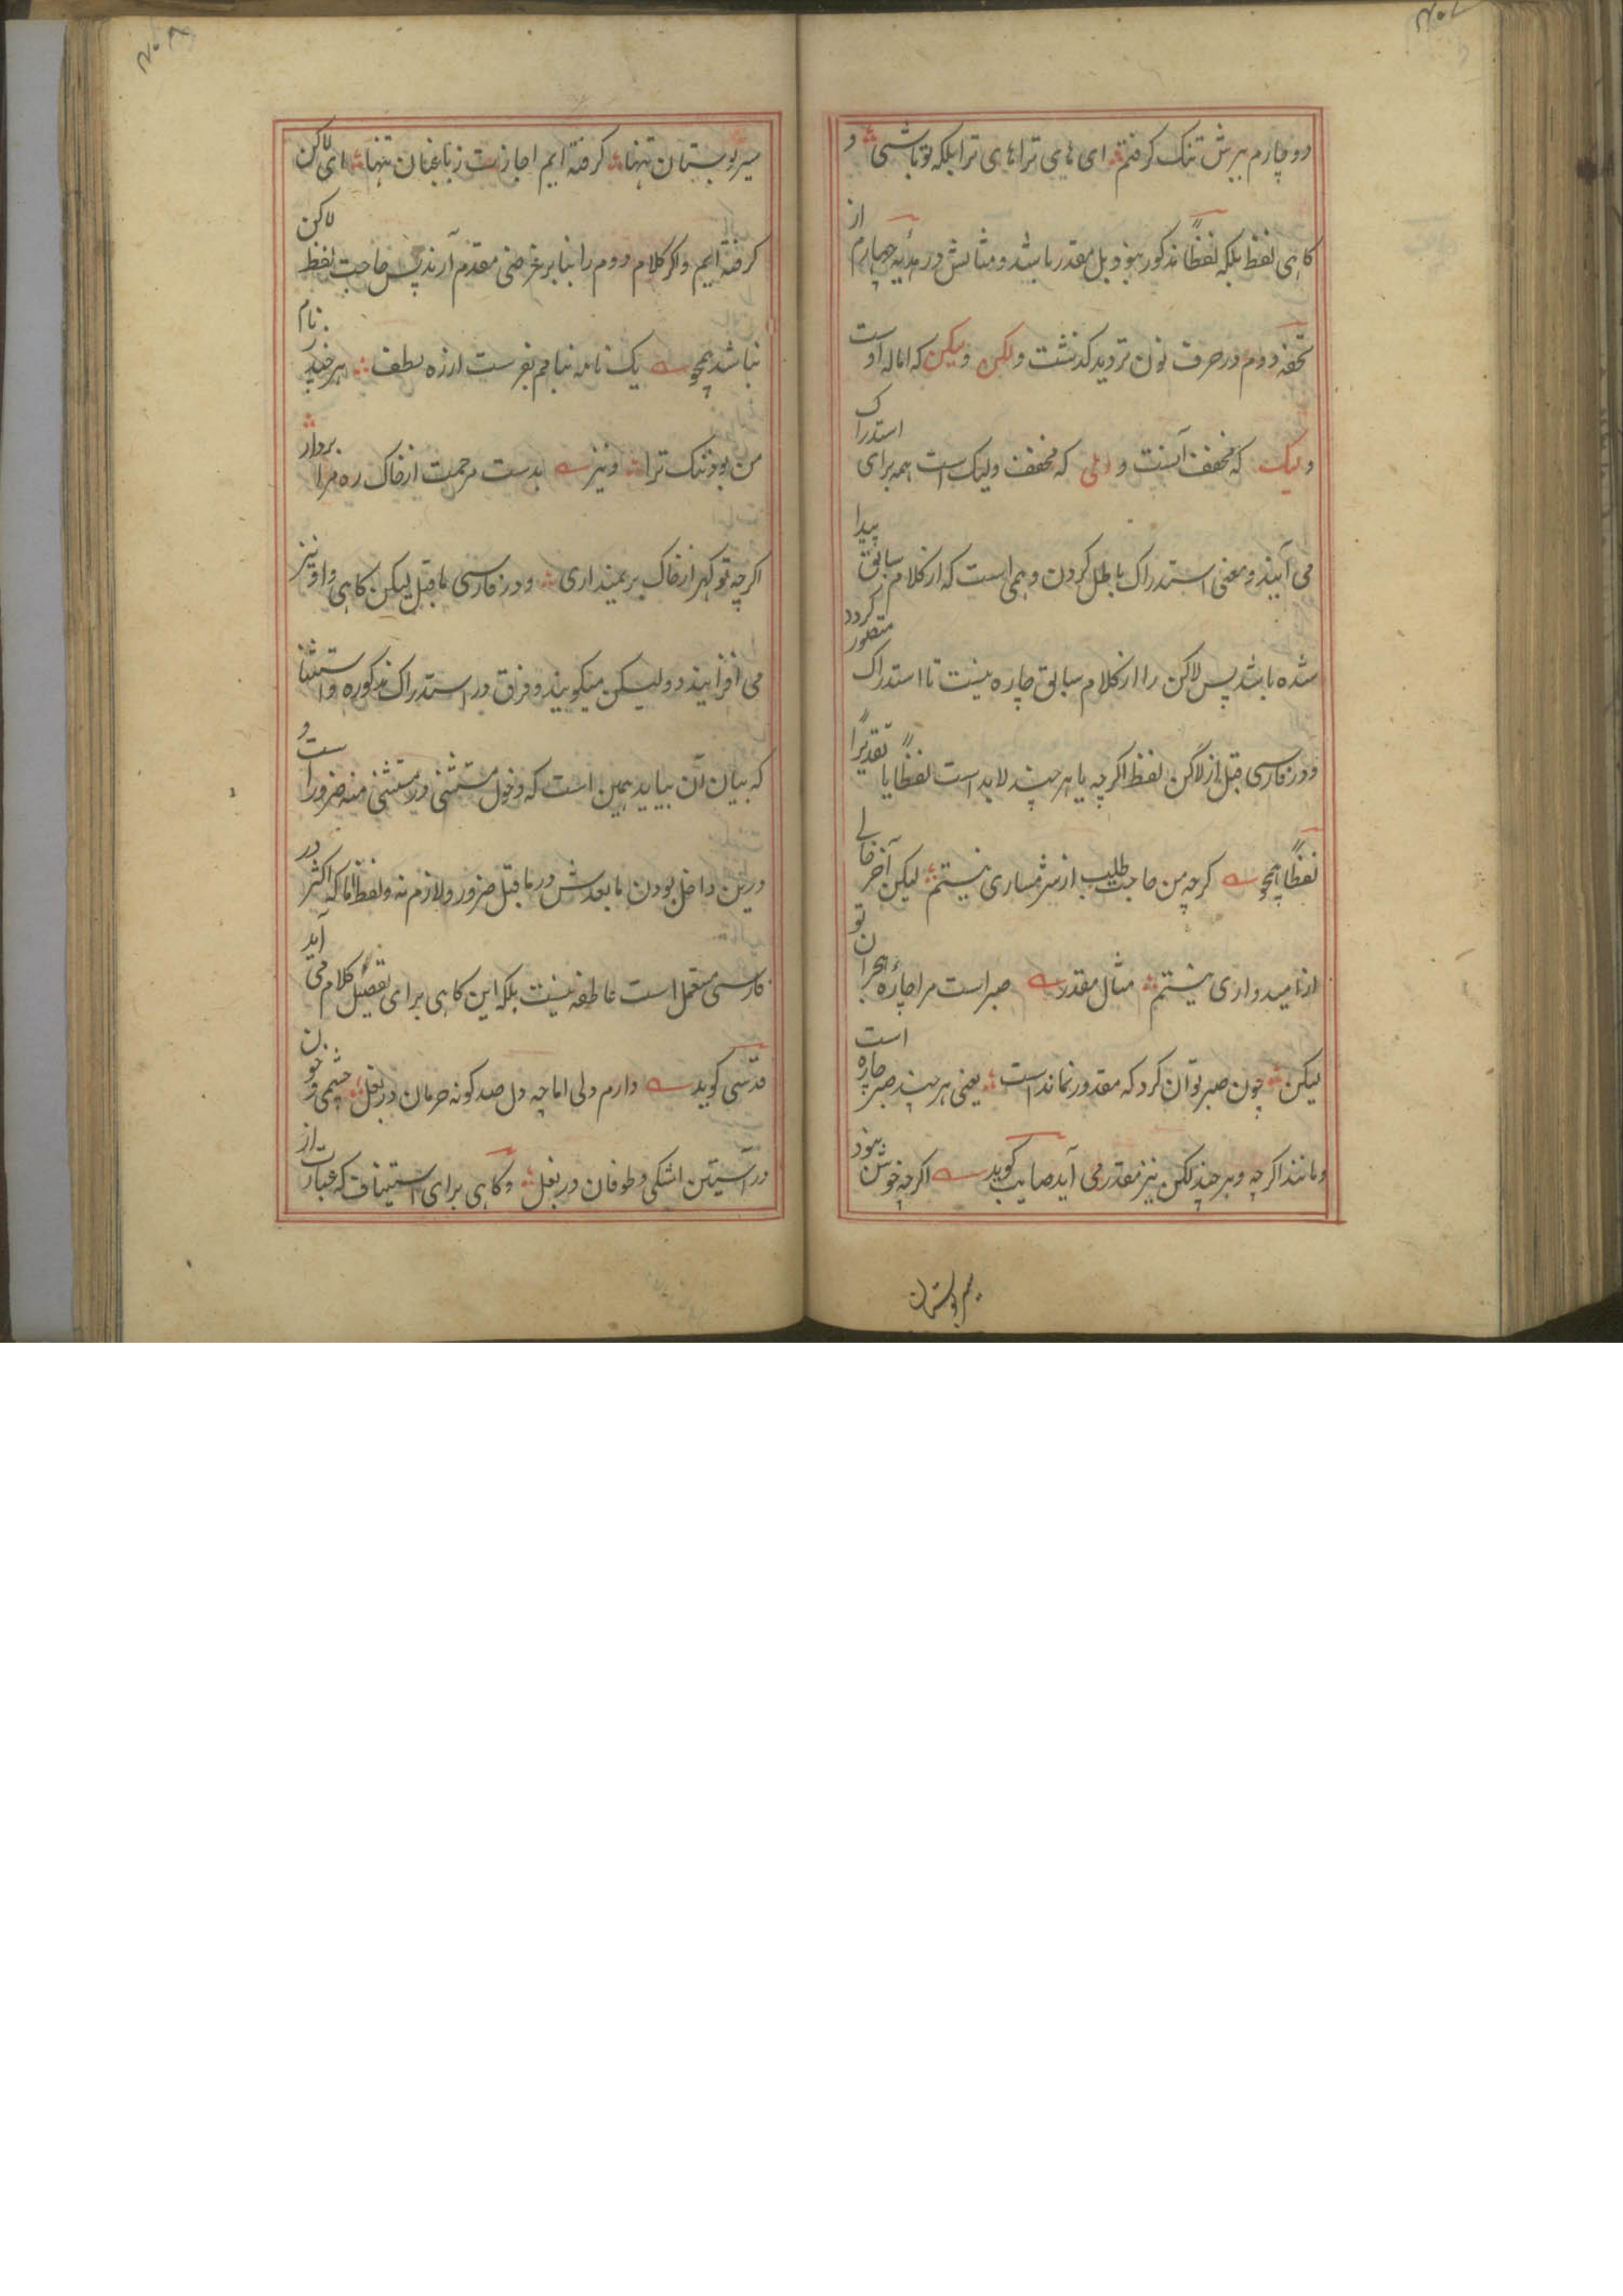 دو چارم ببرش تنک کرفتم ای های ترا های ترا بلکه تو باشی و
کاهی لفظ بلکه لفظاً مذکور نبود بل مقدر باشد و مثالش در هدیه چهارم از
تحفه دوم در حرف نون تردید کذشت ولکن ولیکن که اماله اوست
ولیک که مخفف آنست و ولی که مخفف ولیک است همه برای استدراک
می آیند و معنی استدراک باطل کردن وهم است که از کلام سابق پیدا
شده باشد پس لاکن را از کلام سابق چاره نیست تا استدراک متصور کردد
و در فارسی قبل از لاکن لفظ اکرچه یا هرچند لابد است لفظاً یا تقدیراً
لفظاً همچو کرچه من حاجت طلب از شرمساری نیستم لیکن آخر خالی
از امیدواری نیستم مثال مقدر صبر است مرا چاره هجران تو
لیکن چون صبر توان کرد که مقدور نماند است یعنی هرچند صبر چاره است
و مانند اکرچه و هرچند لکن نیز مقدر می آید صایب کوید اکرچه خوش نبود
سیر بوستان
سیر بوستان تنها کرفته ایم اجازت زباغبان تنها ای لاکن
کرفته ایم و اکر کلام دوم را بنا بر غرضی مقدم آرند پس حاجت لفظ لاکن
نباشد همچو یک نامه بنامم بفرست از ره لطف هرچند ز نام
من بود ننک ترا و نیز بدست مرحمت از خاک ره مرا بردار
اکرچه تو کهر از خاک برنمیداری و در فارسی ماقبل لیکن کاهی واو نیز
می افزایند و ولیکن میکویند و فرق در استدراک مذکوره و استثنا
که بیان آن بیاید همین است که دخول مستثنی در مستثنی منه ضرور است و
درین داخل بودن مابعدش در ماقبل ضرور و لازم نه و لفظ اما که اکثر در
فارسی مستعمل است عاطفه نیست بلکه این کاهی برای تفصیل کلام می آید
قدسی کوید دارم دلی اما چه دل صد کونه حرمان در بغل چشمی و خون
در آستین اشکی و طوفان در بغل و کاهی برای استیناف که عبارت از